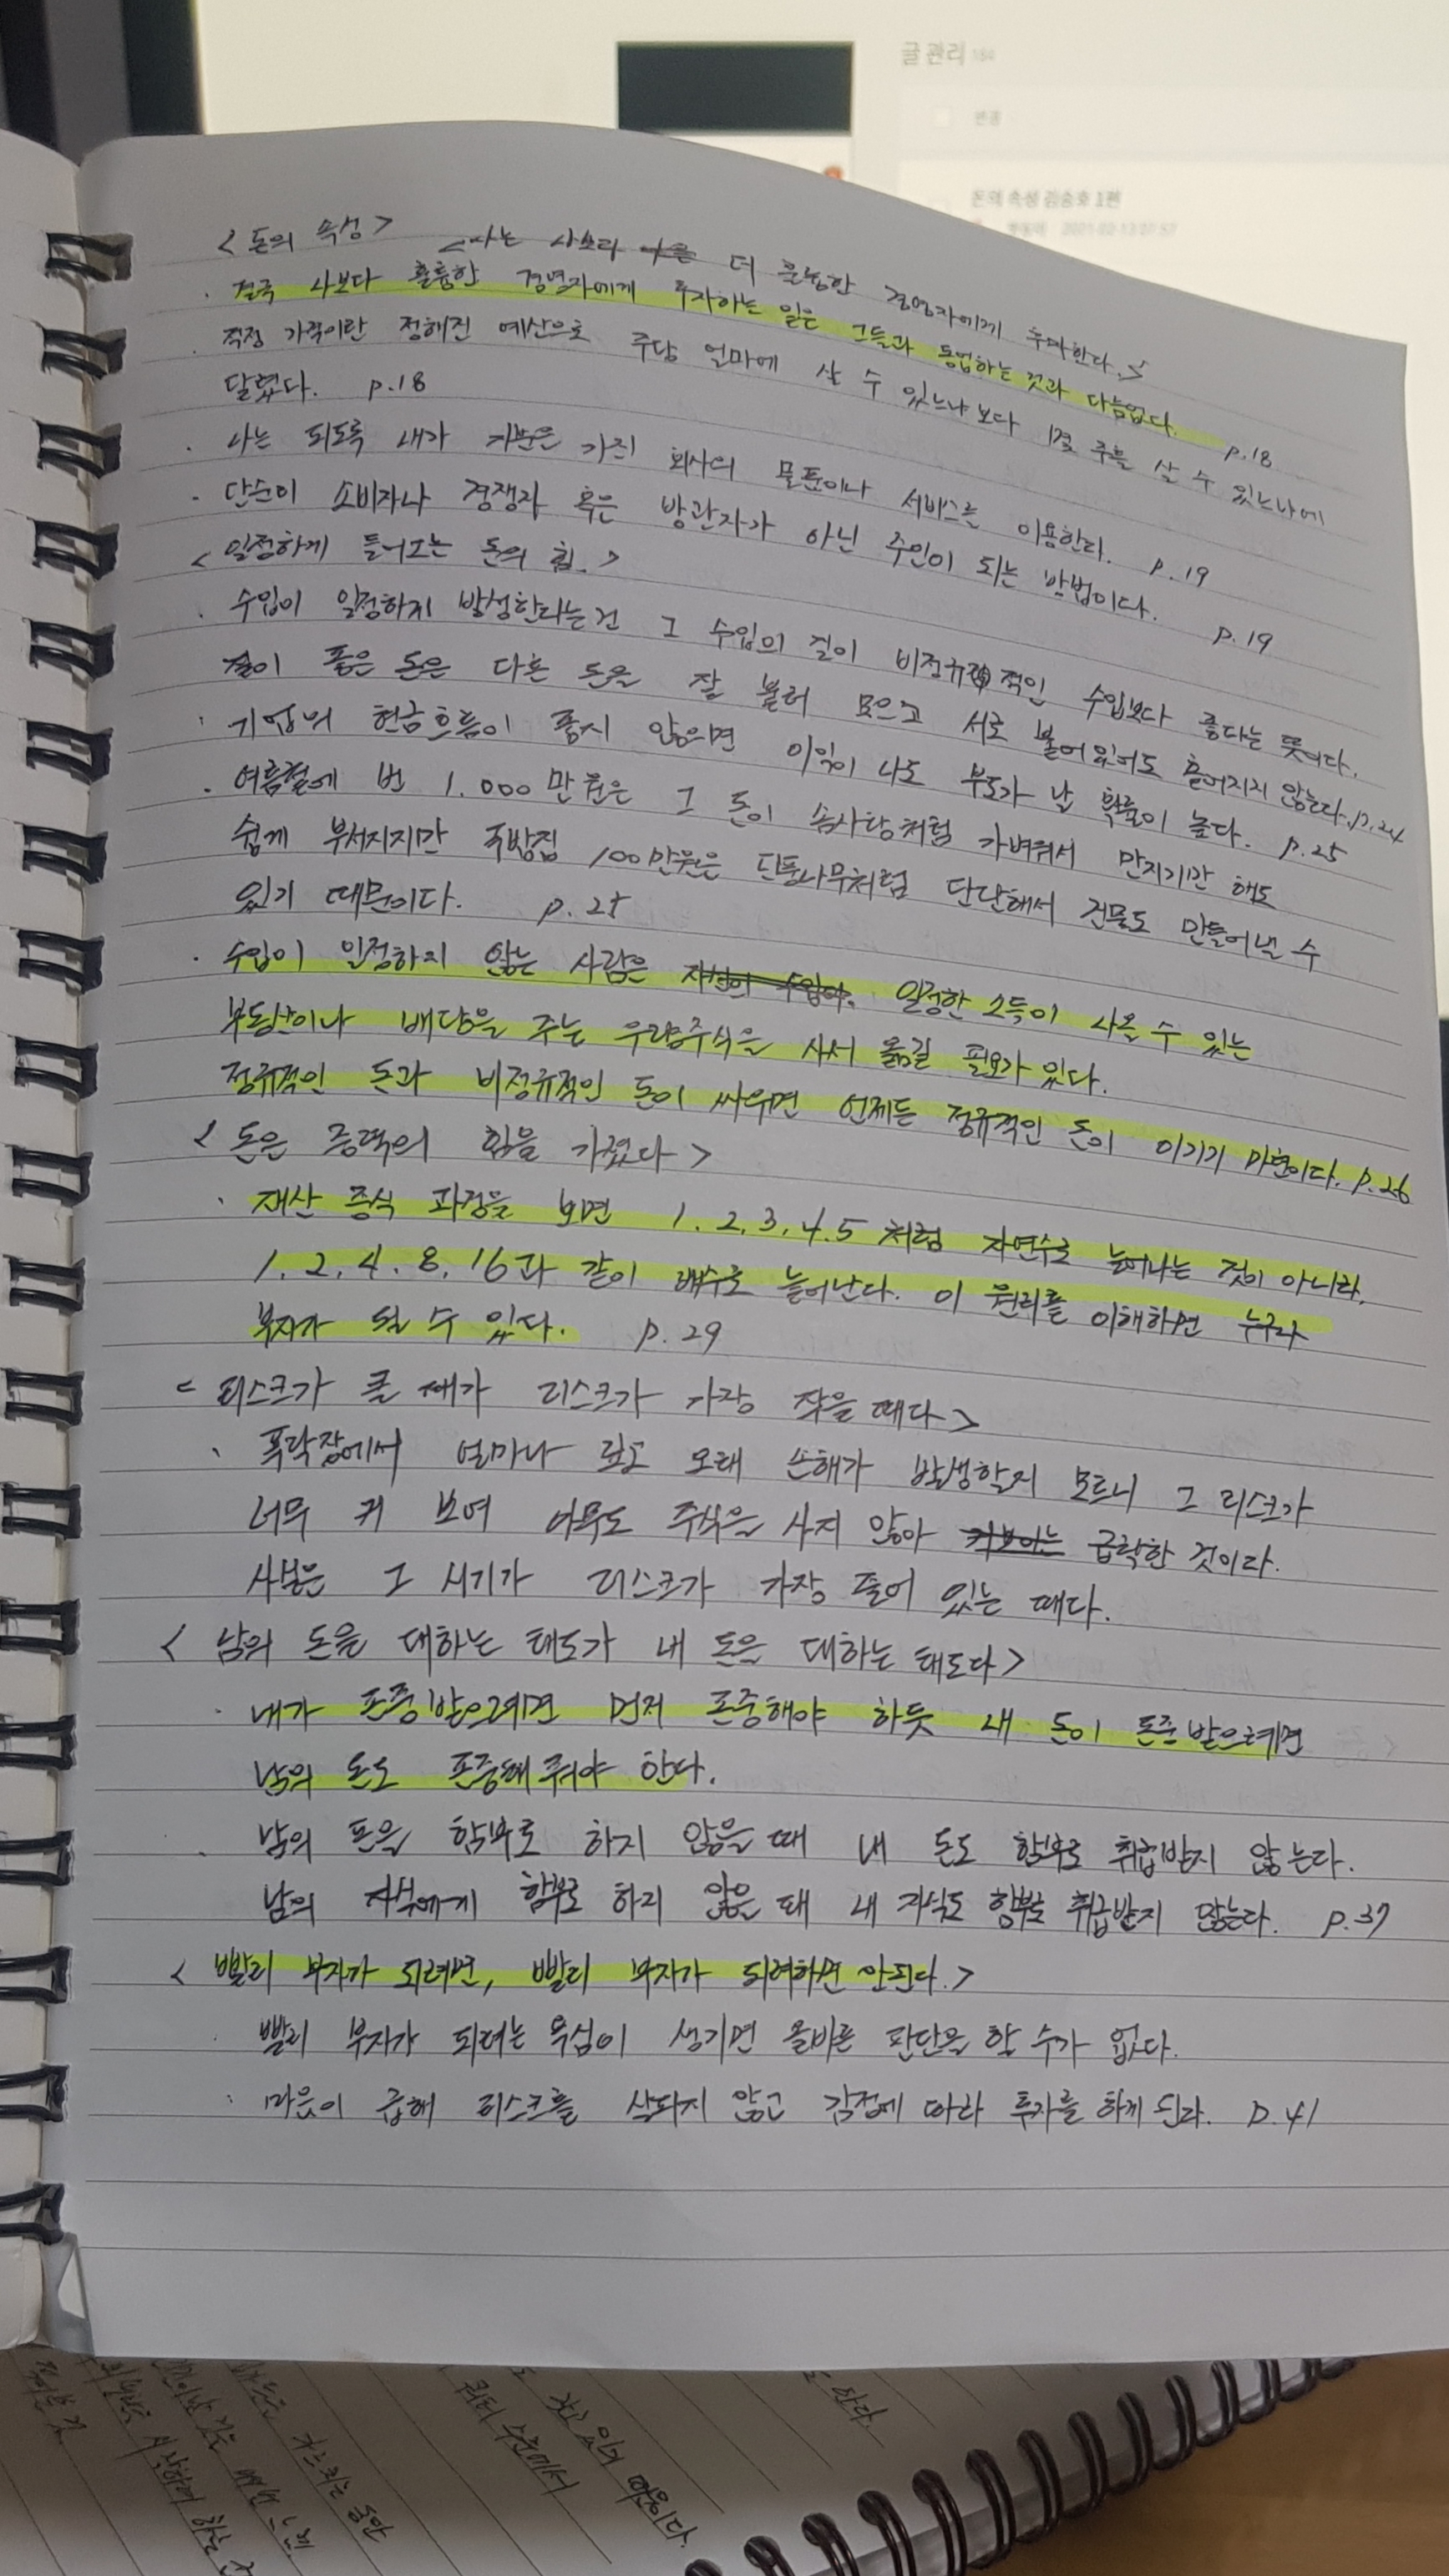 글 관리 184
변경
돈의 속성 김승호 1편
2021-02-13 01:57
<돈의 속성> <나는 나보다 더 훌륭한 경영자에게 투자한다.>
· 결국 나보다 훌륭한 경영자에게 투자하는 일은 그들과 동업하는 것과 다름없다. p.18
· 적정 가격이란 정해진 예산으로 주당 얼마에 살 수 있느냐보다 몇 주를 살 수 있느냐에
달렸다. p.18
· 나는 되도록 내가 지분은 가진 회사의 물품이나 서비스를 이용한다. p.19
· 단순이 소비자나 경쟁자 혹은 방관자가 아닌 주인이 되는 방법이다. p.19
<일정하게 들어오는 돈의 힘.>
· 수입이 일정하지 발생한다는건 그 수입의 질이 비정규적인 수입보다 좋다는 뜻이다.
질이 좋은 돈은 다른 돈을 잘 불러 모으고 서로 붙어있어도 흩어지지 않는다. p.24
· 기업의 현금흐름이 좋지 않으면 이익이 나도 부도가 날 확률이 높다. p.25
· 여름철에 번 1.000만원은 그 돈이 솜사탕처럼 가벼워서 만지기만 해도
쉽게 부서지지만 국밥집 100만원은 단풍나무처럼 단단해서 건물도 만들어낼 수
있기 때문이다. p.25
· 수입이 일정하지 않는 사람은 일정한 소득이 나올 수 있는
부동산이나 배당을 주는 우량주식을 사서 옮길 필요가 있다.
정규적인 돈과 비정규적인 돈이 싸우면 언제든 정규적인 돈이 이기기 마련이다. p.26
<돈은 중력의 힘을 가졌다>
· 재산 증식 과정을 보면 1. 2, 3, 4. 5 처럼 자연수로 늘어나는 것이 아니라,
1. 2, 4. 8, 16과 같이 배수로 늘어난다. 이 원리를 이해하면 누구라
부자가 될 수 있다. p.29
<리스크가 클 때가 리스크가 가장 작을 때다>
· 폭락장에서 얼마나 깊고 오래 손해가 발생할지 모르니 그 리스크가
너무 커 보여 아무도 주식은 사지 않아 급락한 것이다.
사실은 그 시기가 리스크가 가장 줄어 있는 때다.
<남의 돈을 대하는 태도가 내 돈을 대하는 태도다>
· 내가 존중받으려면 먼저 존중해야 하듯 내 돈이 존중 받으려면
남의 돈도 존중해줘야 한다.
· 남의 돈을 함부로 하지 않을 때 내 돈도 함부로 취급받지 않는다.
남의 자식에게 함부로 하지 않은 때 내 자식도 함부로 취급받지 않는다. p.37
<빨리 부자가 되려면, 빨리 부자가 되려하면 안된다.>
· 빨리 부자가 되려는 욕심이 생기면 올바른 판단을 할 수가 없다.
· 마음이 급해 리스크를 살피지 않고 감정에 따라 투자를 하게 된다. p.41